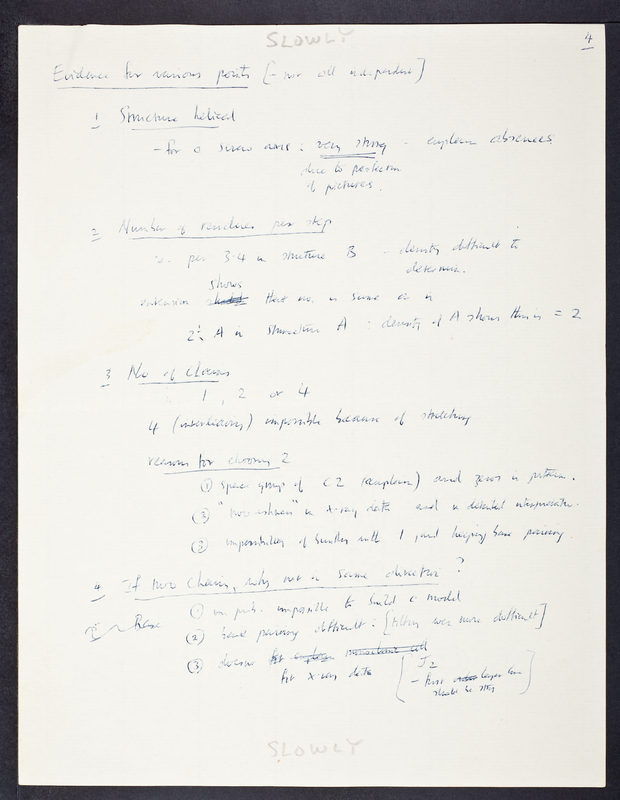 SLOWLY
4
Evidence for various points [- not all independent]
1 Structure helical
- for a screw axis : very strong - explain absences
due to position
of pictures.
2 Number of residues per step
i.e. per 3.4 in structure B - density difficult to
determine.
shows
extension that no. is same as in
A in structure A : density of A shows this is = 2
3 No of chains
1, 2 or 4
4 (interlacing) impossible because of stretching
reasons for choosing 2
① space group of C2 (explain) and zeros in pattern.
② "two-ishness" in X-ray data and in detailed interpretation.
③ impossibility of building with 1 and keeping base pairing.
4 If two chains, why not in same direction?
① impossible to build a model
② base pairing difficult : [tilting even more difficult]
③ doesn't
for x-ray data
J2
- first layer line
should be strong
Base
SLOWLY